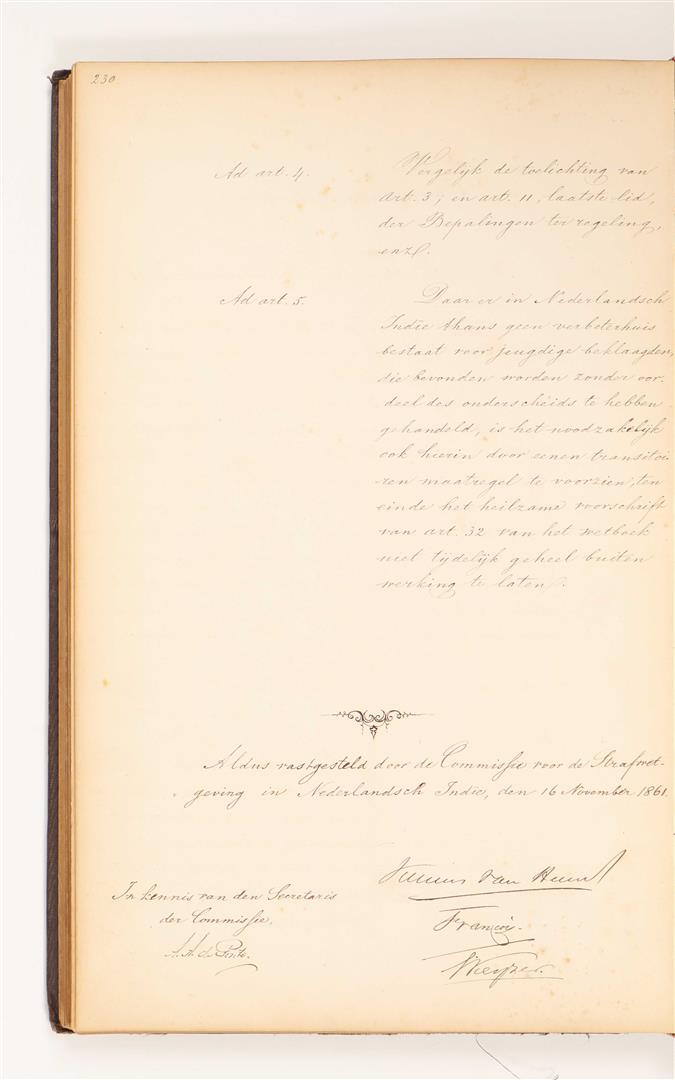 230
Ad art. 4.
Vergelijk de toelichting van
art. 3; en art. 11, laatste lid,
der Bepalingen ter regeling,
enz.
Ad art. 5.
Daar er in Nederlandsch
Indie thans geen verbeterhuis
bestaat voor jeugdige beklaagden,
die bevonden worden zonder oor-
deel des onderscheids te hebben
gehandeld, is het noodzakelijk
ook hierin door eenen transitoi-
ren maatregel te voorzien, ten
einde het heilzame voorschrift
van art. 32 van het wetboek
niet tijdelijk geheel buiten
werking te laten.
Aldus vastgesteld door de Commissie voor de Strafwet-
geving in Nederlandsch Indie, den 16 November 1861.
van
François.
In kennis van den Secretaris
der Commissie,
A. A. de Pinto.